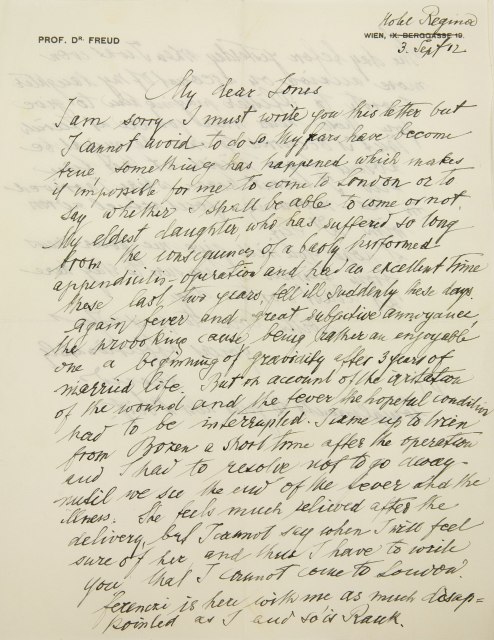 Hotel Regina
PROF. DR. FREUD
WIEN, IX. BERGGASSE 19.
3. Sept 12
My dear Jones
I am sorry I must write you this letter but
I cannot avoid to do so. My fears have become
true, something has happened which makes
it impossible for me to come to London or to
say whether I shall be able to come or not.
My eldest daughter who has suffered so long
from the consequences of a badly performed
appendicitis-operation and had an excellent time
these last two years, fell ill suddenly these days.
Again fever and great subjective annoyance,
the provoking cause being rather an enjoyable
one a beginning of gravidity after 3 years of
married life. But on account of the irritation
of the wound and the fever the hopeful condition
had to be interrupted. I came up to Wien
from Bozen a short time after the operation
and I had to resolve not to go away
until we see the end of the fever and the
illness. She feels much relieved after the
delivery, but I cannot say when I will feel
sure of her and thus I have to write
you that I cannot come to London.
Ferenczi is here with me as much disap-
pointed as I and so is Rank.